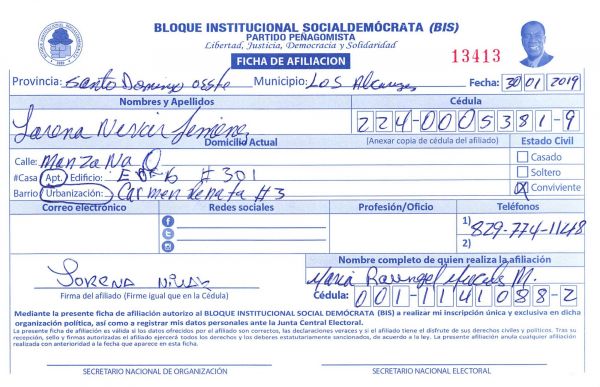 BLOQUE INSTITUCIONAL SOCIALDEMÓCRATA (BIS)
PARTIDO PEÑAGOMISTA
Libertad, Justicia, Democracia y Solidaridad
FICHA DE AFILIACION
13413
Provincia: Santo Domingo Oeste Municipio: Los Alcarrizos Fecha: 30/01/2019
Nombres y Apellidos Cédula
Lorena 224-0005381-9
Domicilio Actual (Anexar copia de cédula del afiliado) Estado Civil
Calle: Manzana O Casado
#Casa Apt. Edificio: # 301 Soltero
Barrio Urbanización: Carmen Renata #3 X Conviviente
Correo electrónico Redes sociales Profesión/Oficio Teléfonos
1) 829-774-1148
2)
Nombre completo de quien realiza la afiliación
Lorena
Maria M.
Firma del afiliado (Firme igual que en la Cédula) Cédula: 001-1141088-2
Mediante la presente ficha de afiliación autorizo al BLOQUE INSTITUCIONAL SOCIAL DEMÓCRATA (BIS) a realizar mi inscripción única y exclusiva en dicha
organización política, así como a registrar mis datos personales ante la Junta Central Electoral.
La presente ficha de afiliación es válida si los datos ofrecidos por el afiliado son correctos, las declaraciones veraces y si el afiliado tiene el disfrute de sus derechos civiles y políticos. Tras su
recepción, sello y firmas autorizadas el afiliado ejercerá todos los derechos y los deberes estatutariamente sancionados, de acuerdo a la ley. La presente afiliación anula cualquier afiliación
realizada con anterioridad a la fecha que aparece en esta ficha.
SECRETARIO NACIONAL DE ORGANIZACIÓN SECRETARIO NACIONAL ELECTORAL